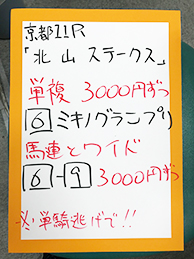 京都11R
「北山ステークス」
単複 3000円ずつ
6 ミキノグランプリ
馬連とワイド
6-9 3000円ずつ
必単騎逃げで!!